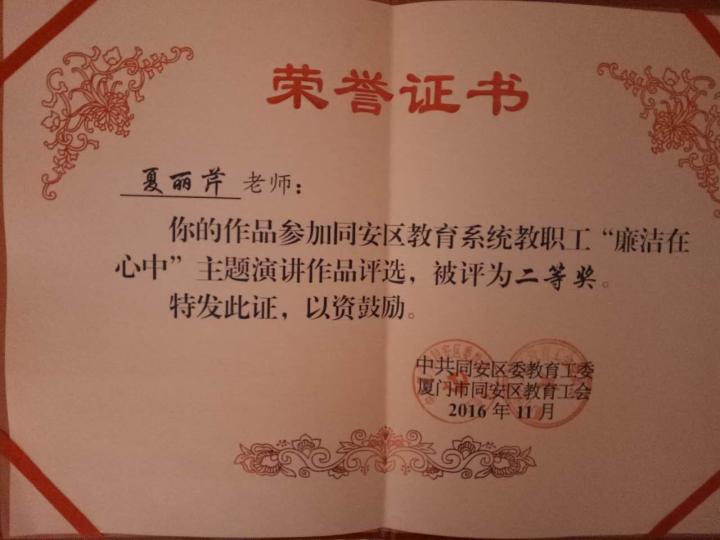 荣誉证书
夏丽芹 老师：
你的作品参加同安区教育系统教职工“廉洁在
心中”主题演讲作品评选，被评为二等奖。
特发此证，以资鼓励。
中共同安区委教育工委
厦门市同安区教育工会
2016 年 11 月